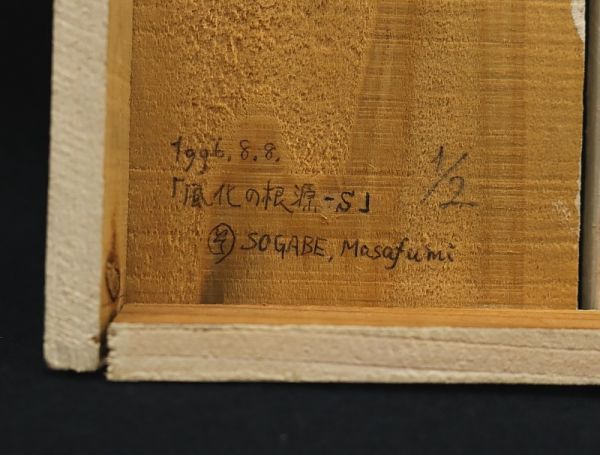 1996. 8. 8.
「風化の根源-S」
1/2
SOGABE, Masafumi